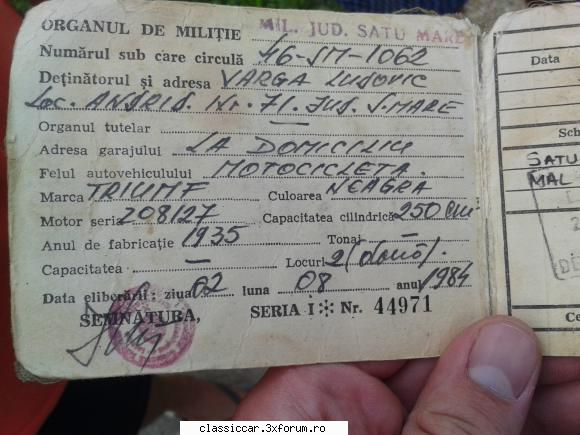 ORGANUL DE MILIȚIE MIL. JUD. SATU MARE
Numărul sub care circulă 46-SM-1062
Deținătorul și adresa VARGA LUDOVIC
Loc. Nr. 71. Jud. S. MARE
Organul tutelar —
Adresa garajului LA DOMICILIU
Felul autovehiculului MOTOCICLETA.
Marca TRIUMF Culoarea NEAGRA
Motor seria 208127 Capacitatea cilindrică 250 cm
Anul de fabricație 1935 Tonaj —
Capacitatea — Locuri 2 (două).
Data eliberării: ziua 02 luna 08 anul 1984
SEMNĂTURA, SERIA I Nr. 44971
Data
SATU
MAL
Ce
classiccar.3xforum.ro